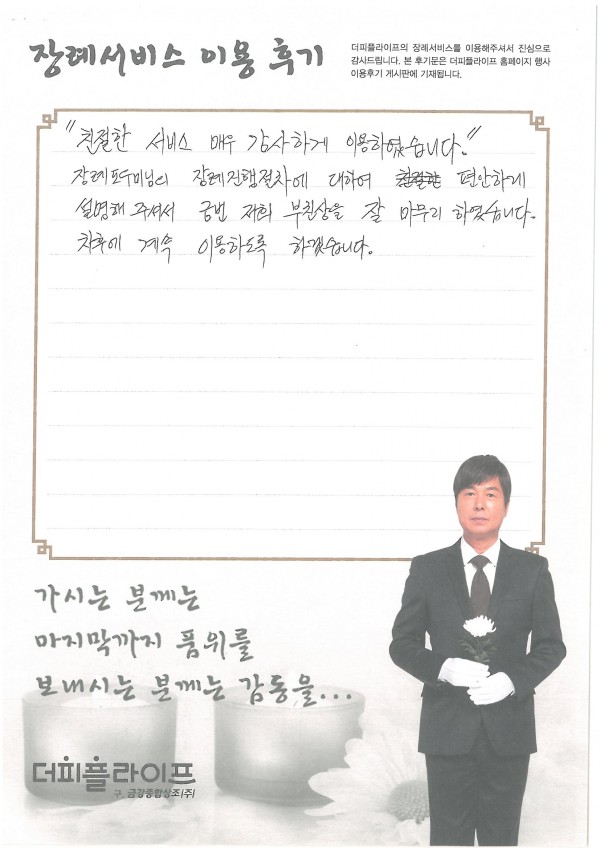 장례서비스 이용 후기
더피플라이프의 장례서비스를 이용해주셔서 진심으로
감사드립니다. 본 후기문은 더피플라이프 홈페이지 행사
이용후기 게시판에 기재됩니다.
"친절한 서비스 매우 감사하게 이용하였습니다."
장례도우미님의 장례진행절차에 대하여 친절한 편안하게
설명해 주셔서 금번 저희 부친상을 잘 마무리 하였습니다.
차후에 계속 이용하도록 하겠습니다.
가시는 분께는
마지막까지 품위를
보내시는 분께는 감동을...
더피플라이프
구. 금강종합상조(주)